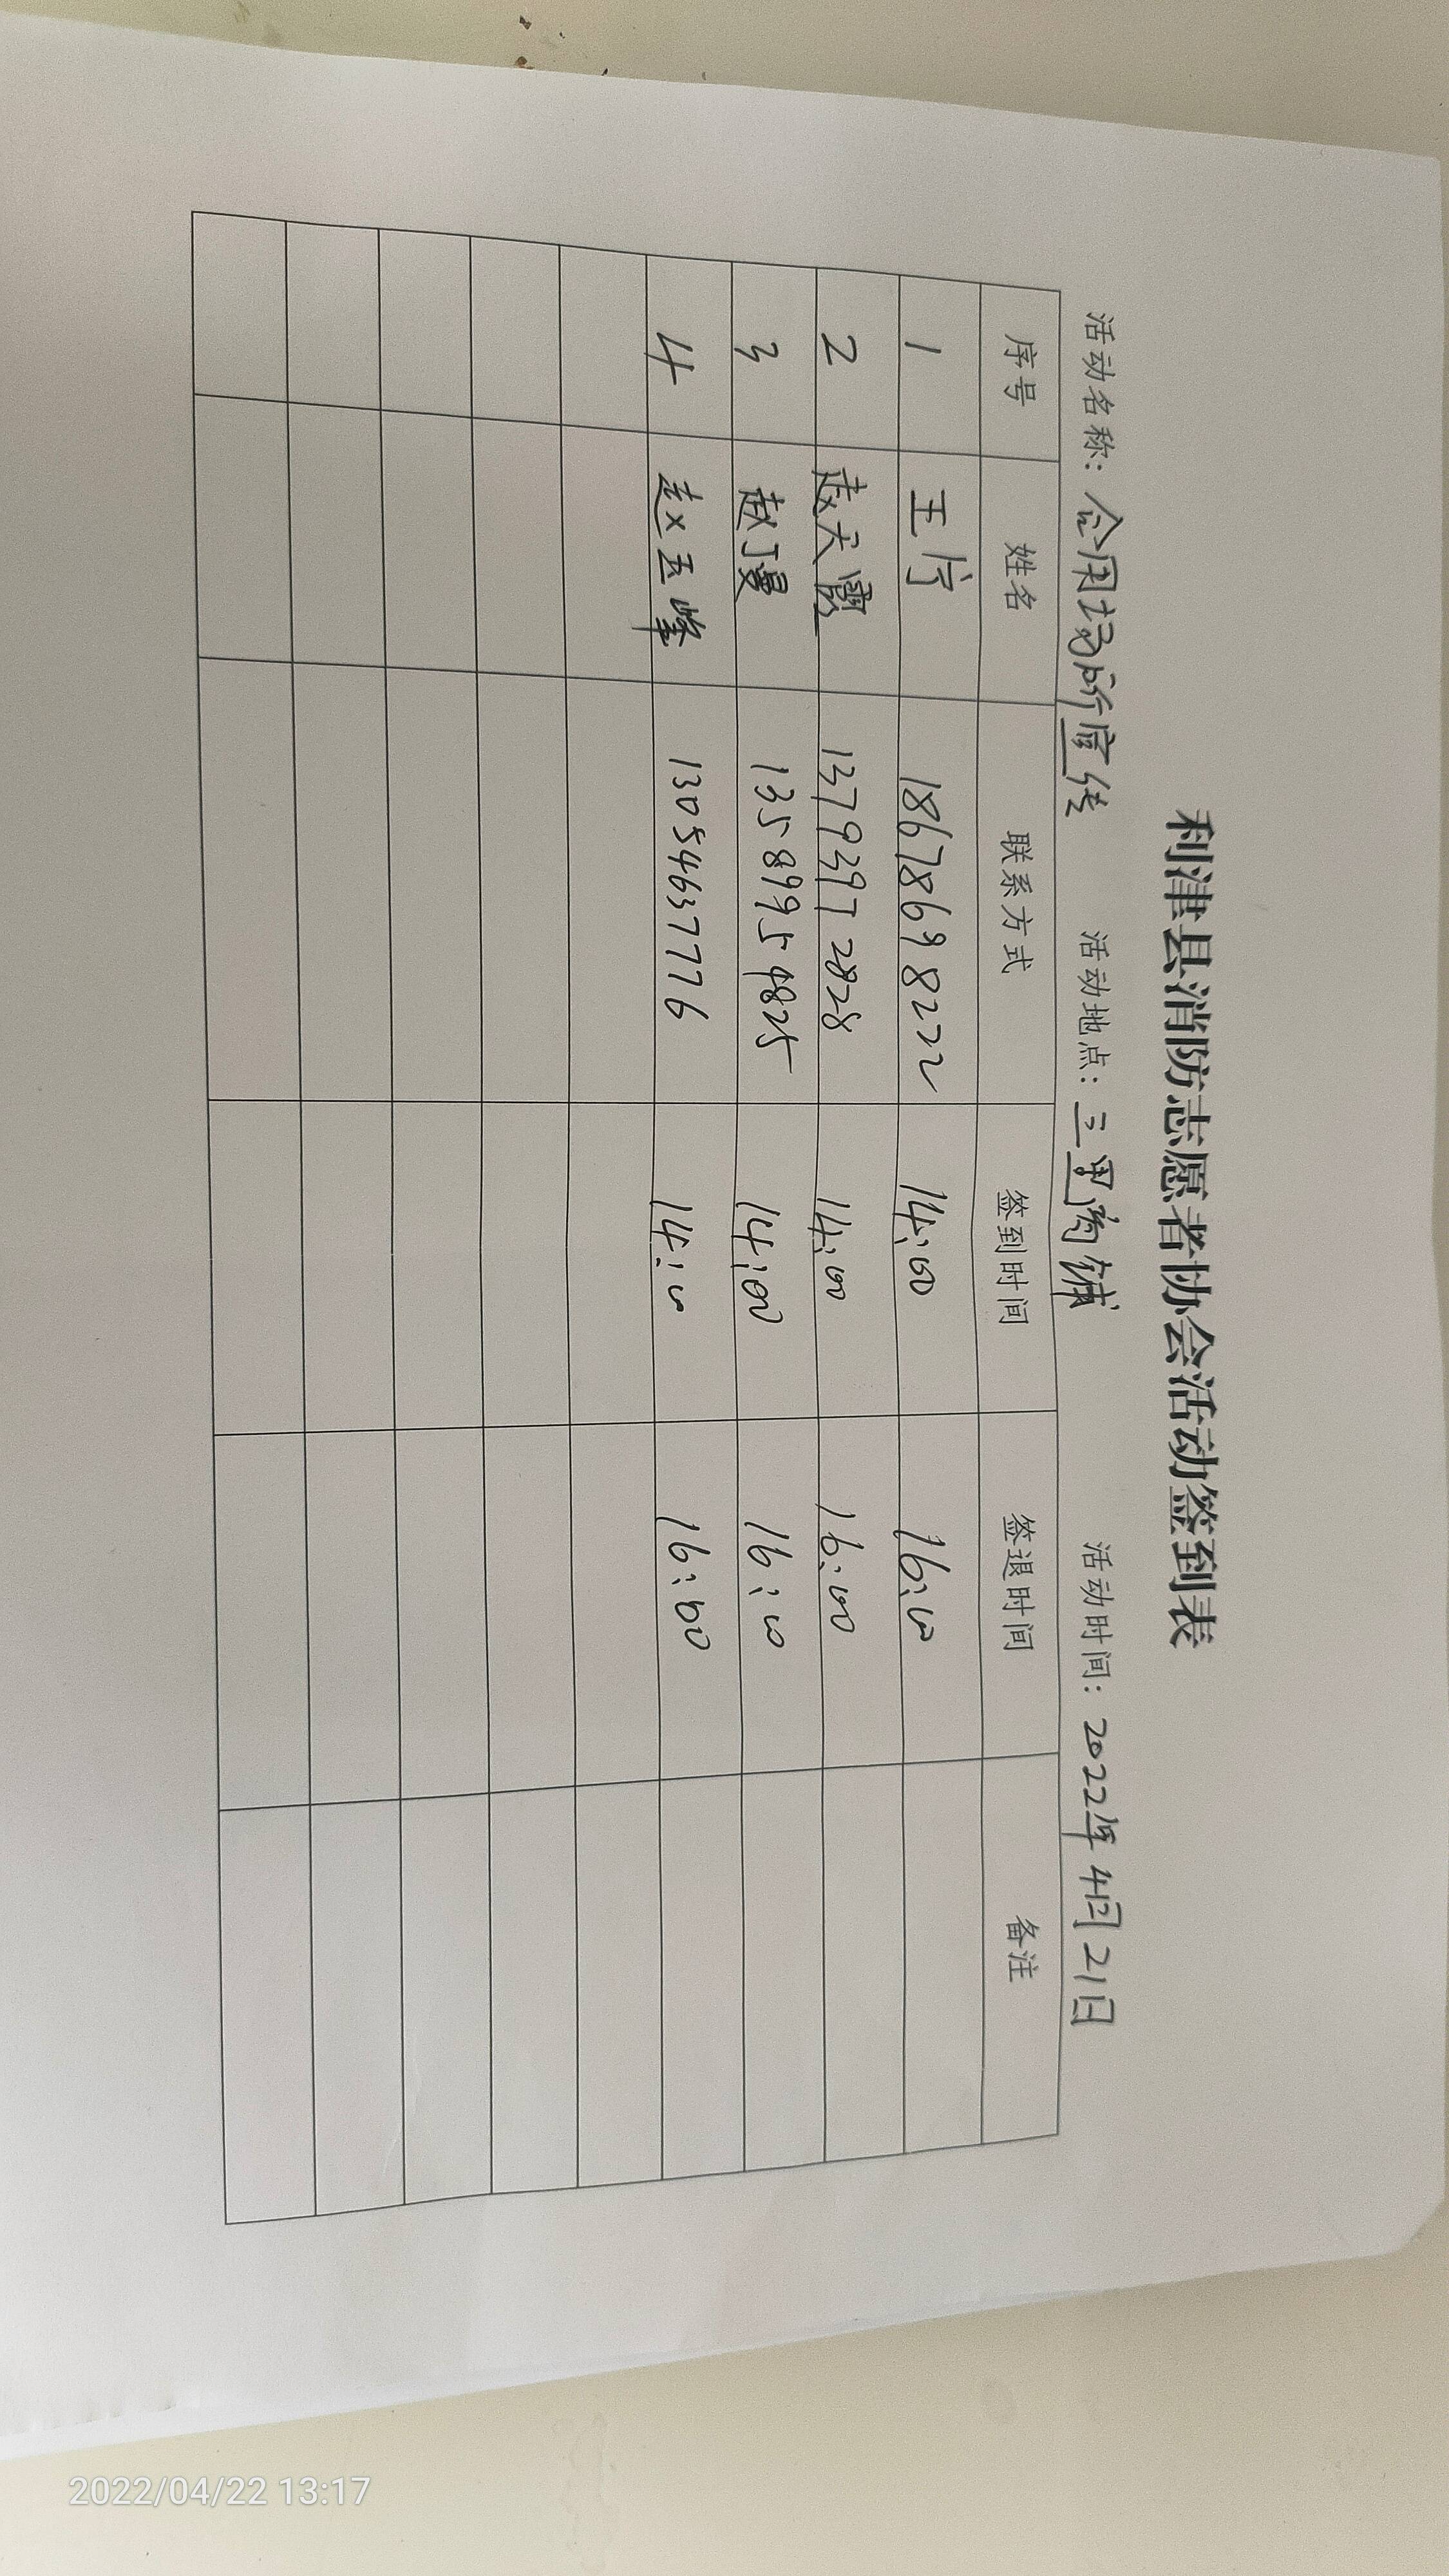 利津县消防志愿者协会活动签到表
活动名称：合用场所宣传 活动地点：三里沟铺 活动时间：2022年4月21日
序号 姓名 联系方式 签到时间 签退时间 备注
1 王宁 18678698222 14:00 16:00
2 赵天霞 13793972828 14:00 16:00
3 13589954825 14:00 16:00
4 赵玉峰 13054637776 14:00 16:00
2022/04/22 13:17